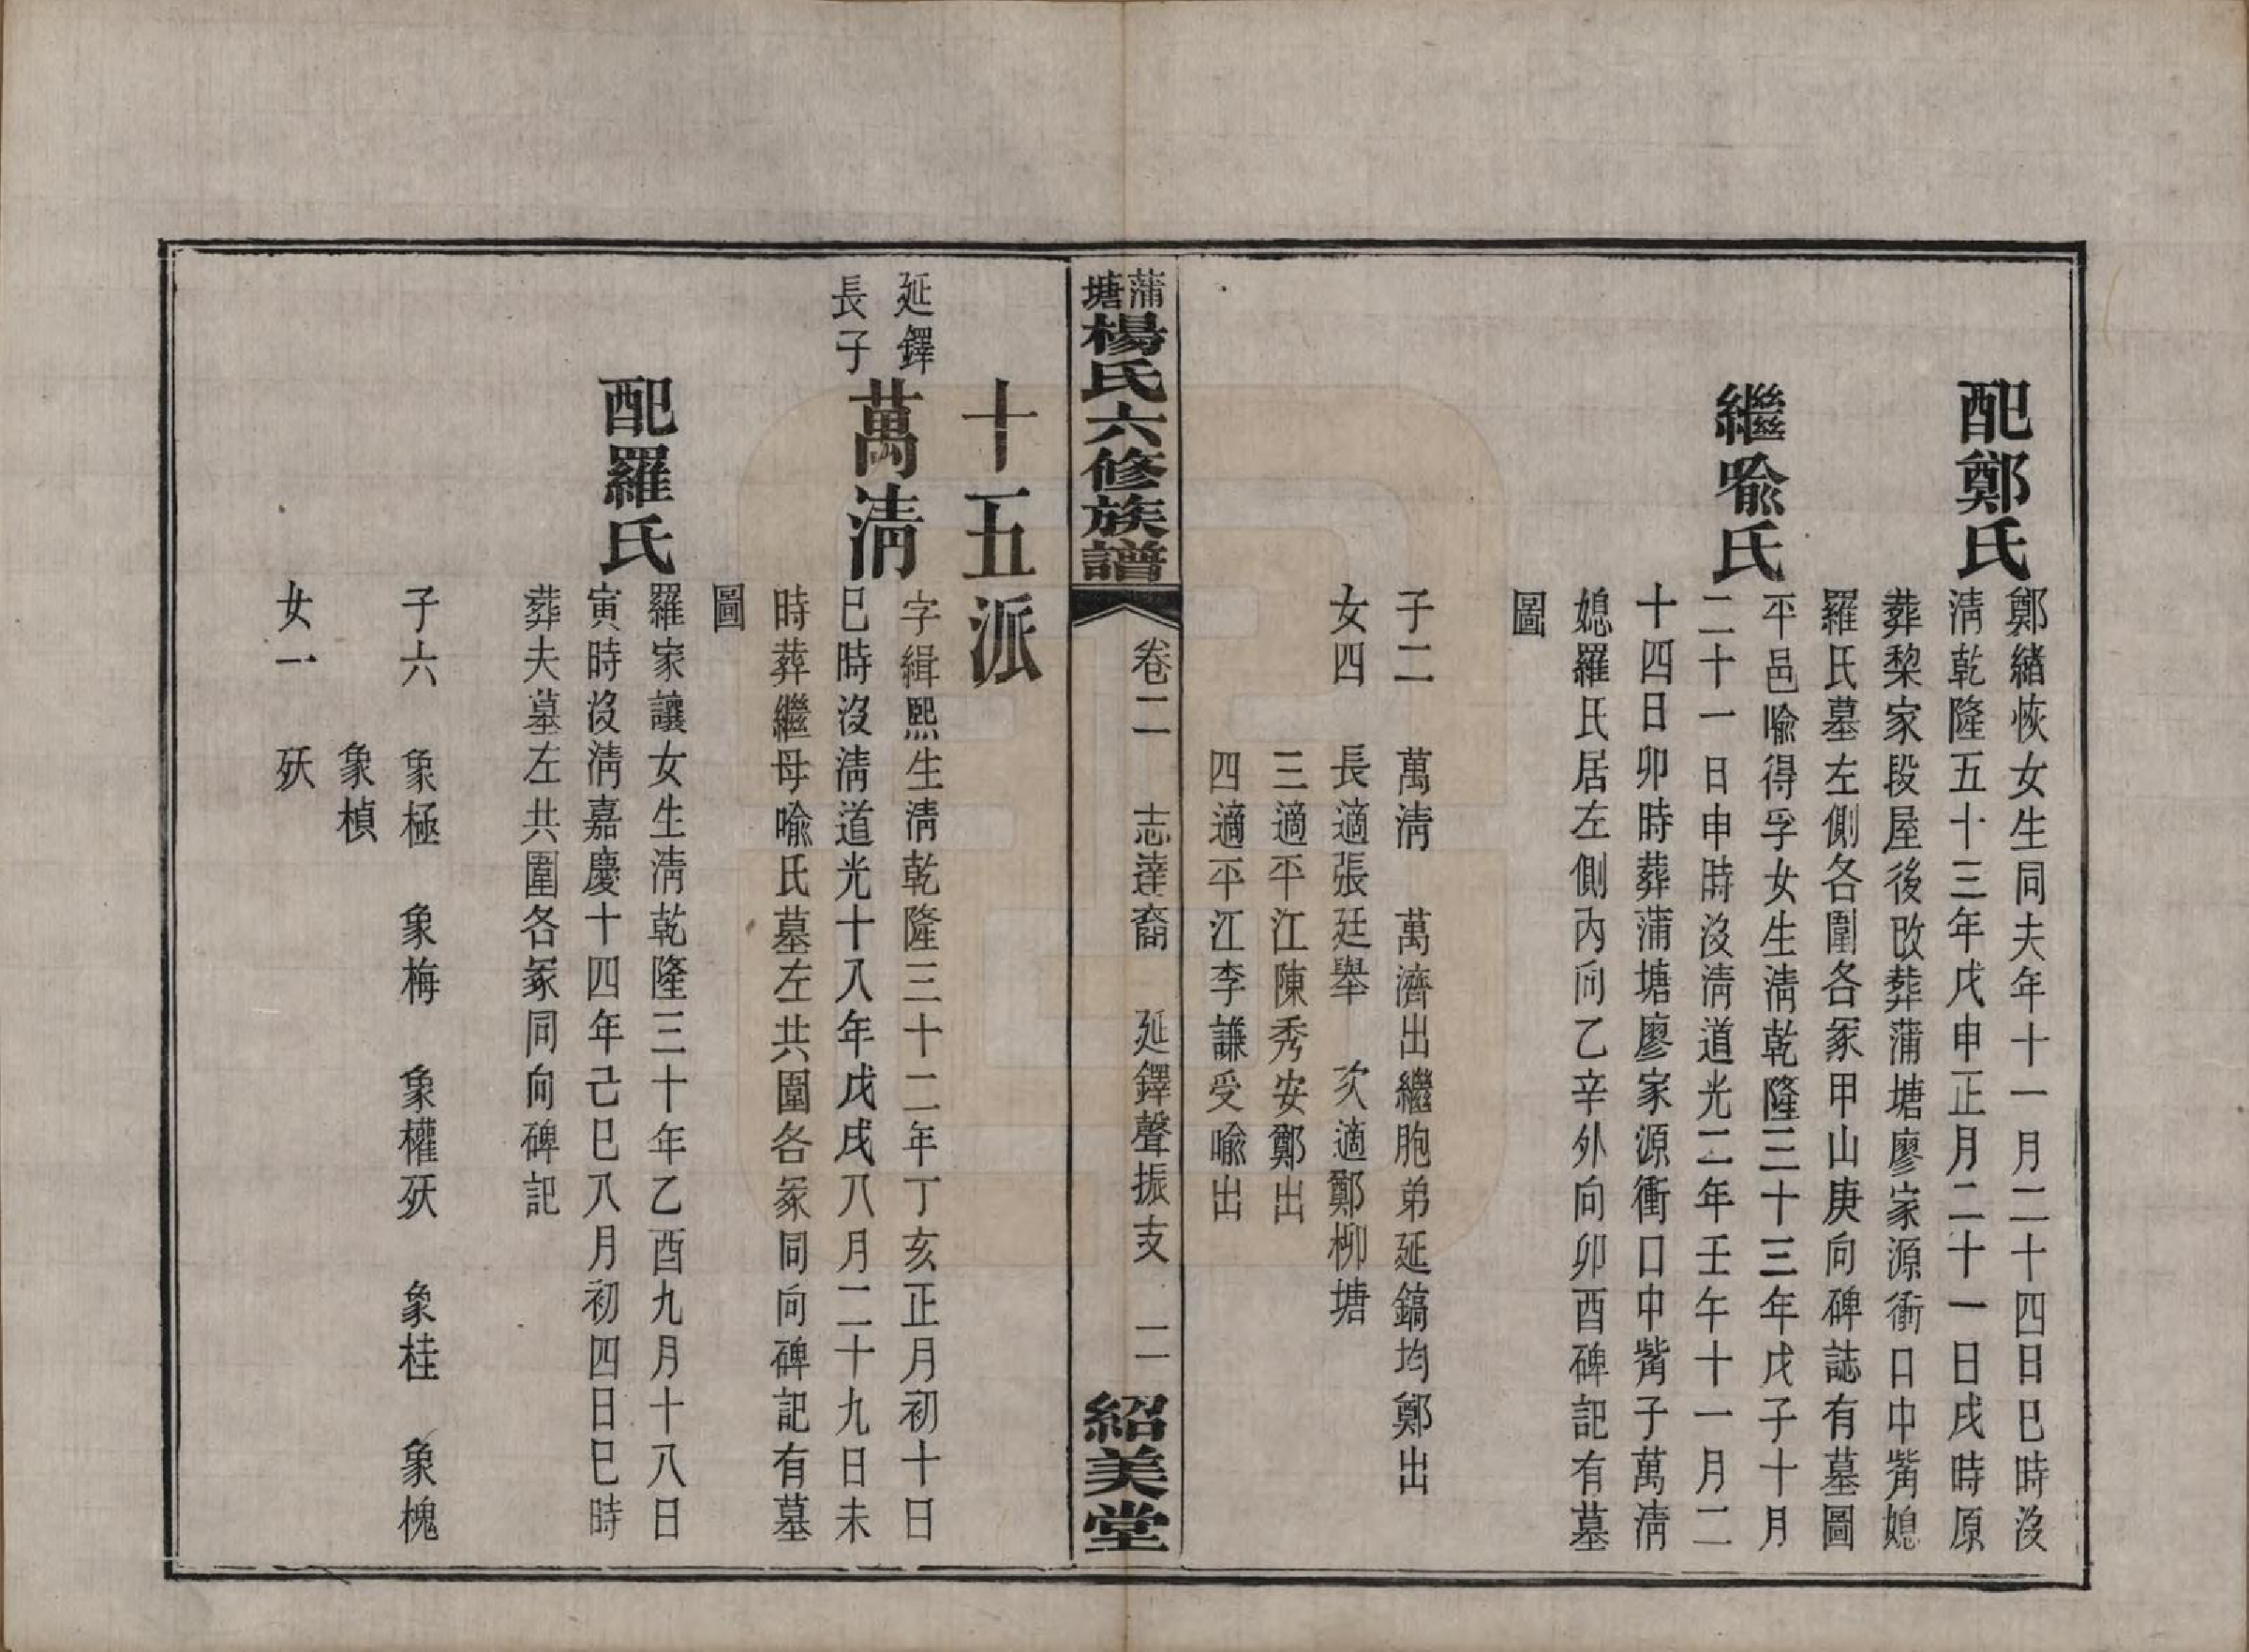 配鄭氏
鄭緒恢女生同夫年十一月二十四日巳時沒
淸乾隆五十三年戊申正月二十一日戌時原
葬棃家段屋後改葬蒲塘廖家源衝口中嘴媳
羅氏墓左側各圍各冢甲山庚向碑誌有墓圖
繼喩氏
平邑喩得孚女生淸乾隆三十三年戊子十月
二十一日申時沒淸道光二年壬午十一月二
十四日卯時葬蒲塘廖家源衝口中嘴子萬淸
媳羅氏居左側內向乙辛外向卯酉碑記有墓
圖
子二 萬淸 萬濟出繼胞弟延鎬均鄭出
女四 長適張廷舉 次適鄭柳塘
三適平江陳秀安鄭出
四適平江李謙受喩出
蒲塘楊氏六修族譜 卷二 志達裔 延鐸聲振支 二 紹美堂
十五派
延鐸
長子
萬淸
字緝熙生淸乾隆三十二年丁亥正月初十日
巳時沒淸道光十八年戊戌八月二十九日未
時葬繼母喩氏墓左共圍各冢同向碑記有墓
圖
配羅氏
羅家讓女生淸乾隆三十年乙酉九月十八日
寅時沒淸嘉慶十四年己巳八月初四日巳時
葬夫墓左共圍各冢同向碑記
子六 象極 象梅 象權殀 象桂 象槐
象楨
女一 殀